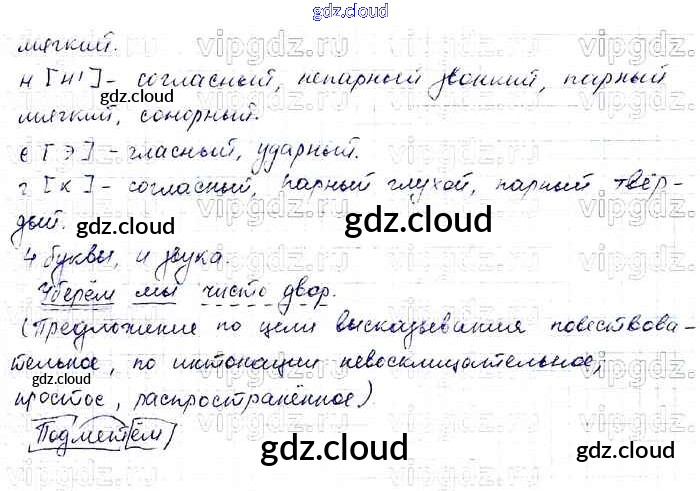 gdz.cloud
мягкий.
н [н'] - согласный, непарный звонкий, парный
мягкий, сонорный.
е [э] - гласный, ударный.
г [к] - согласный, парный глухой, парный твёр-
дый.
4 буквы, 4 звука.
Уберём мы чисто двор.
(Предложение по цели высказывания повествова-
тельное, по интонации невосклицательное,
простое, распространённое)
Подметём